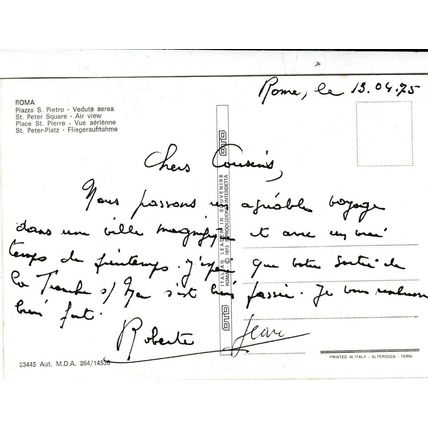 Rome, le 13.04.75
ROMA
Piazza S. Pietro - Veduta aerea
St. Peter Square - Air view
Place St. Pierre - Vue aérienne
St. Peter-Platz - Fliegeraufnahme
Chers Cousins,
Nous passons un agréable voyage
dans une ville magnifique et avec un vrai
temps de printemps. J'espère que votre sortie de
La Tranche s/Mer s'est bien passée. Je vous
bien fort.
Roberte Jean
OTO
ITALIAN LEADER IN SOUVENIRS
RIPRODUZIONE INTERDETTA
OTO
23445 Aut. M.D.A. 264/14536
PRINTED IN ITALY - ALTEROCCA - TERNI